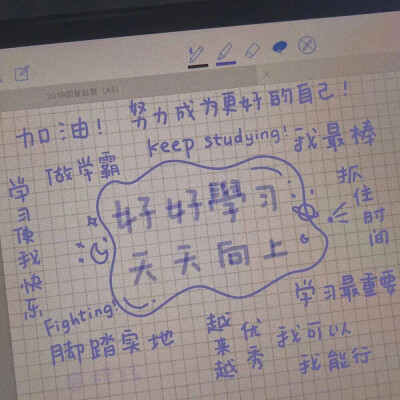 加油！
努力成为更好的自己！
keep studying!
我最棒
做学霸
学习使我快乐
好好學习
天天向上
抓住时间
Fighting!
脚踏实地
学习最重要
越来越优秀
我可以
我能行